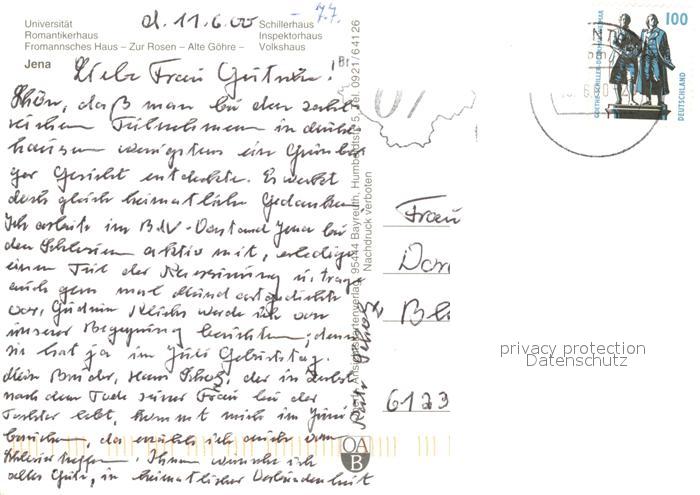 Universität
Romantikerhaus
Frommannsches Haus – Zur Rosen – Alte Göhre –
Schillerhaus
Inspektorhaus
Volkshaus
Jena
d. 11.6.00
7.7.
Liebe Frau
Schön, daß man bei den zahl-
reichen Teilnehmern in
hausen wenigstens ein Grünber-
ger Gesicht entdeckte. Es weckt
doch gleich heimatliche Gedanken.
Ich arbeite im BdV-Vorstand Jena bei
den Schlesiern aktiv mit, erledige
einen Teil der Kassierung u. trage
auch gern mal Mundartgedichte
vor. Gudrun werde ich von
unserer Begegnung berichten, denn
sie hat ja im Juli Geburtstag.
Mein Bruder, Hans, der in
nach dem Tode seiner Frau bei der
Tochter lebt, kommt mich im Juni
besuchen, da erzähle ich auch vom
Schlesiertreffen. Ihnen wünsche ich
alles Gute, in heimatlicher Verbundenheit
Ansichtskartenverlag, 95444 Bayreuth, Humboldtstr. 5, Tel. 0921/64126
Nachdruck verboten
Frau
6123
OA
B
100
GOETHE-SCHILLER-DENKMAL WEIMAR
DEUTSCHLAND
privacy protection
Datenschutz